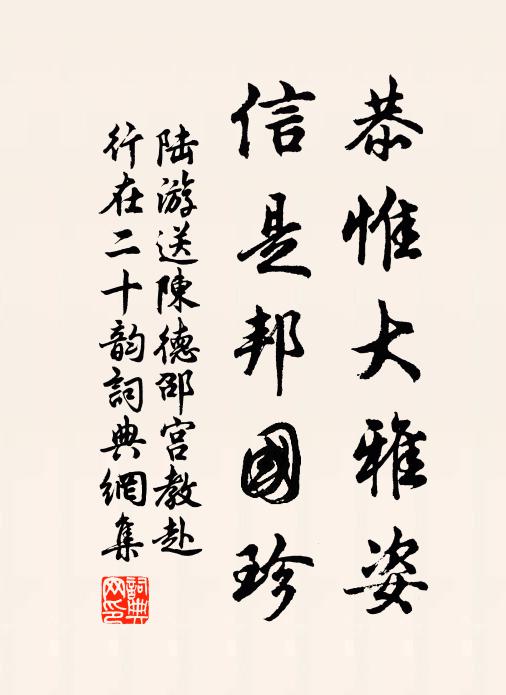 恭惟大雅姿
信是邦國珍
陆游送陳德邵宫教赴
行在二十韵詞典網集
詞典
网印